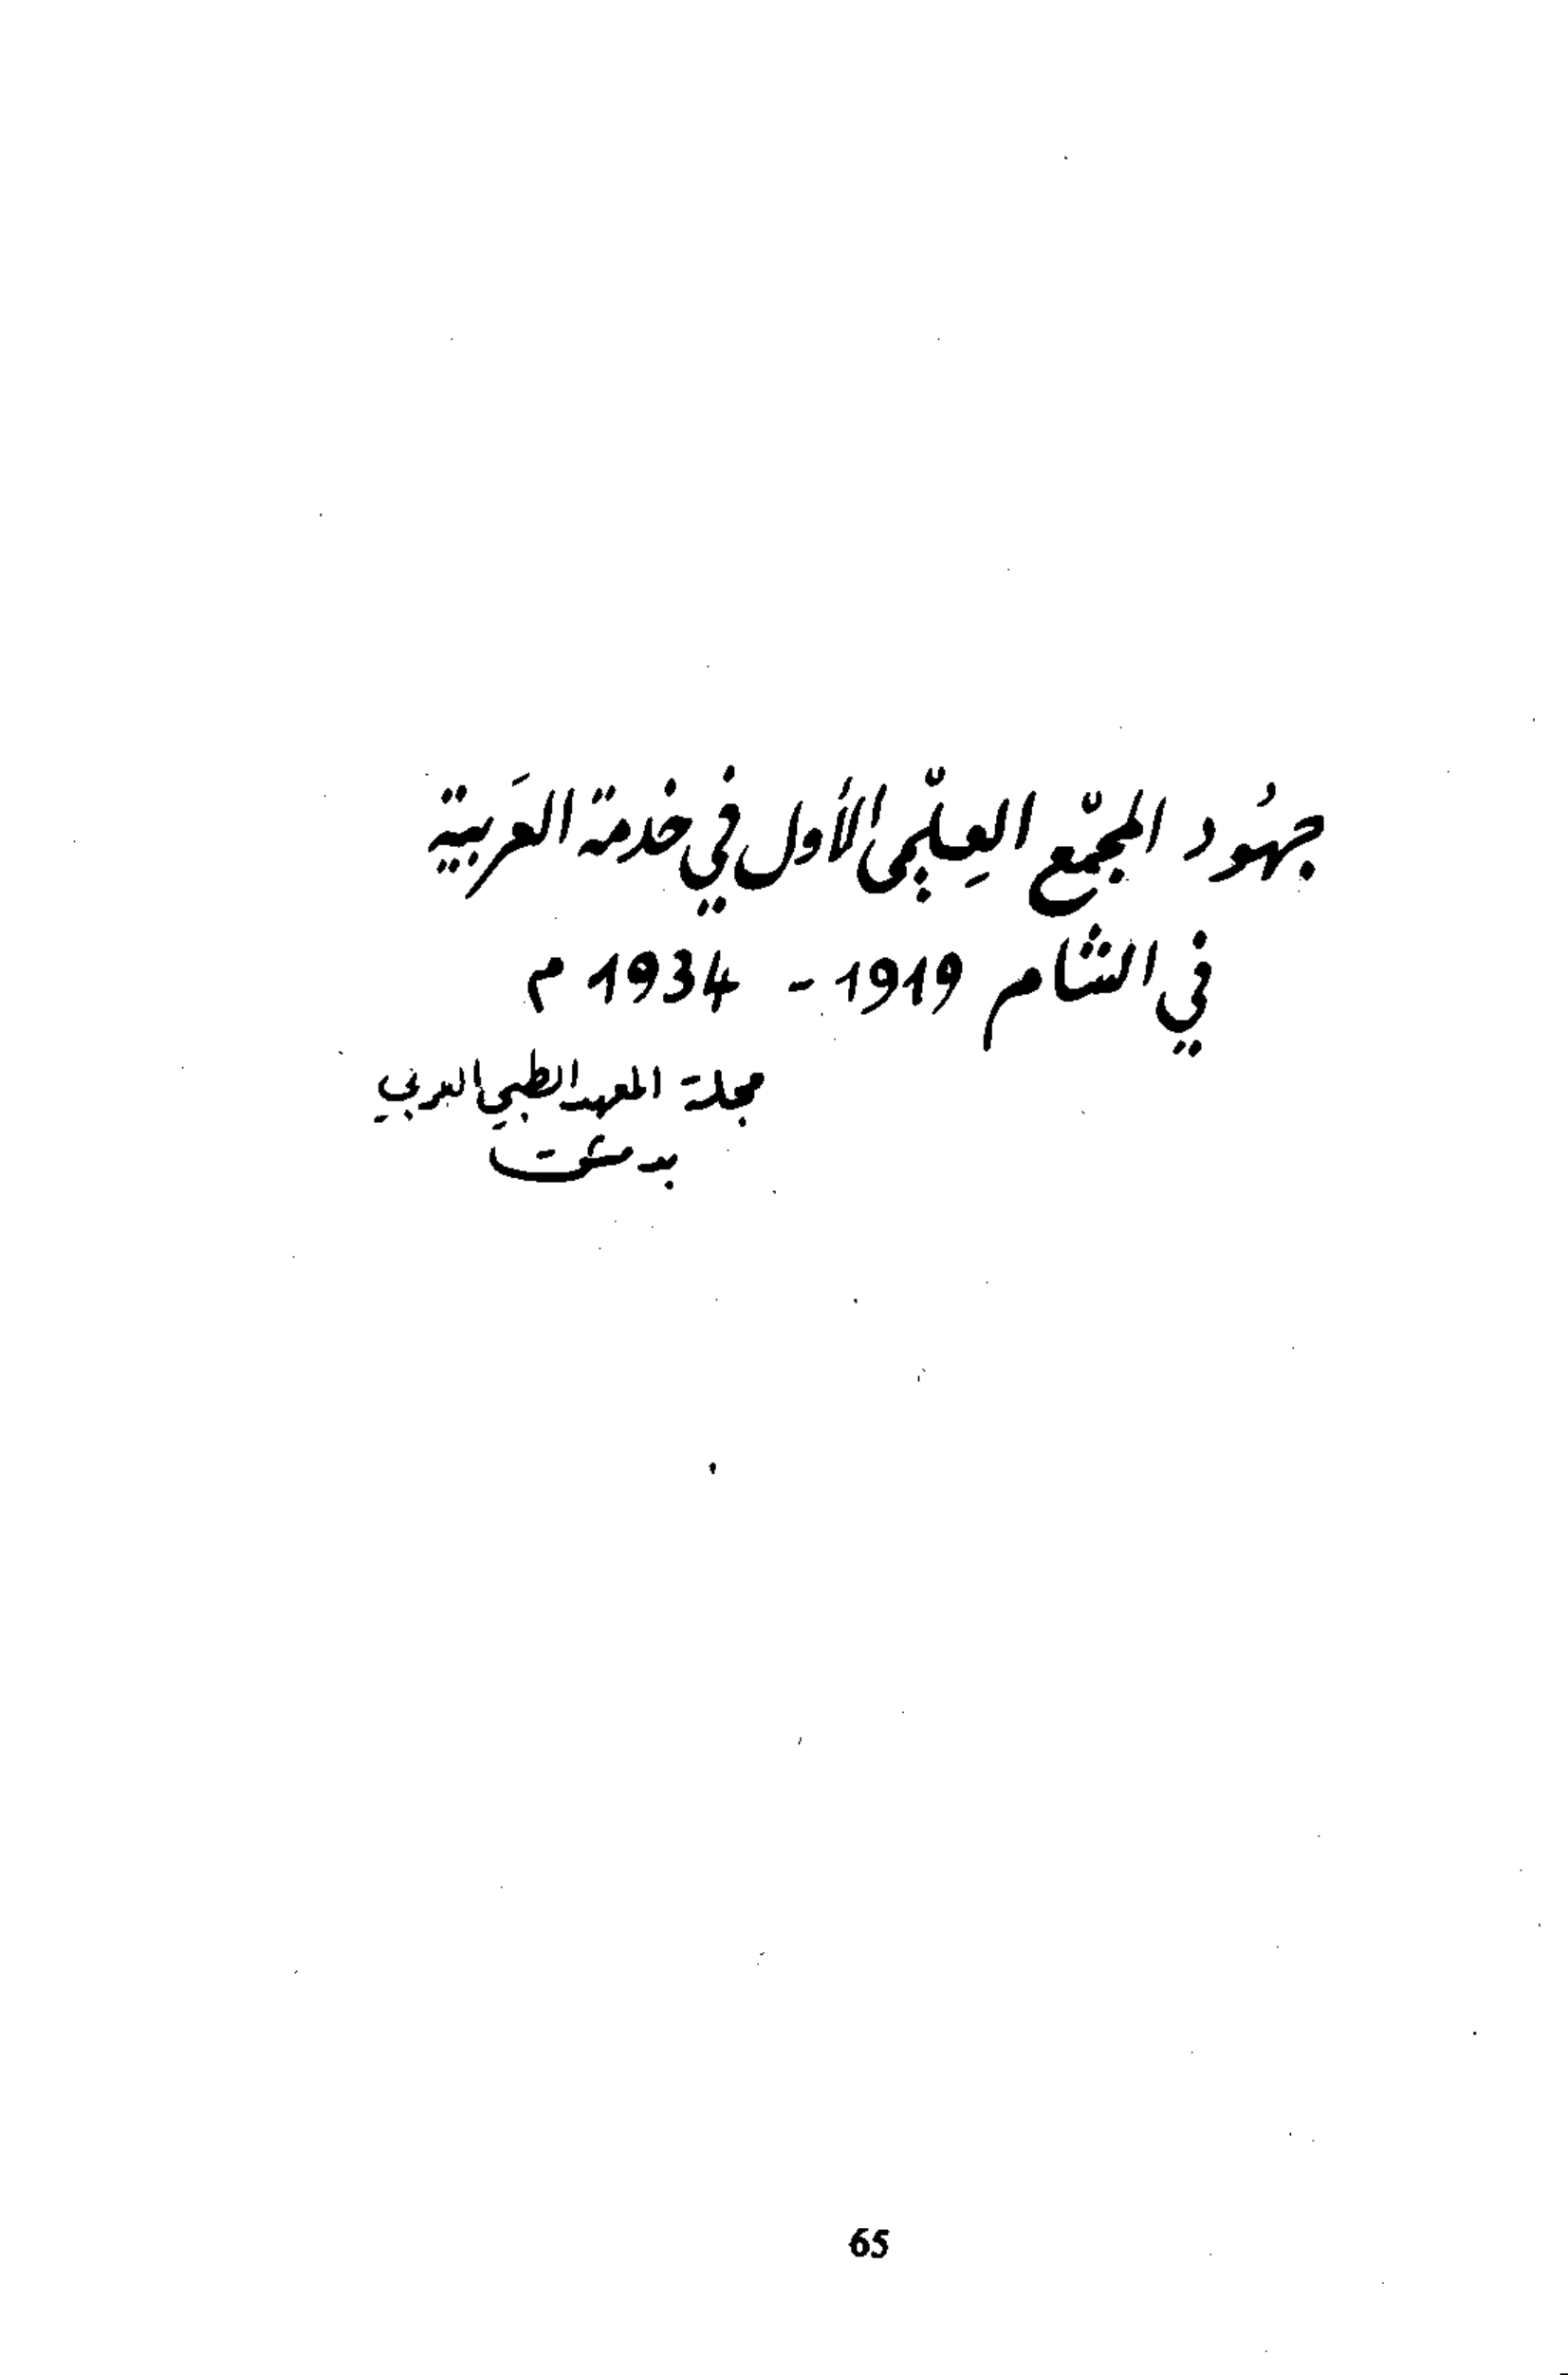 جهُود المجمّع العِلمّي الأَول في خدمة العَربية
في الشام 1919 - 1934 م
مجلة المعهد الطبي العربي
بدمشق
65